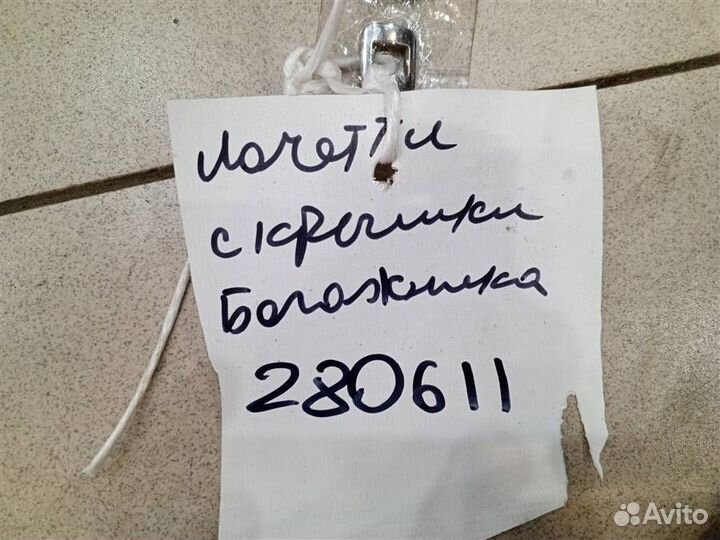 Лачетти
с крышки
Богажника
280611
Avito